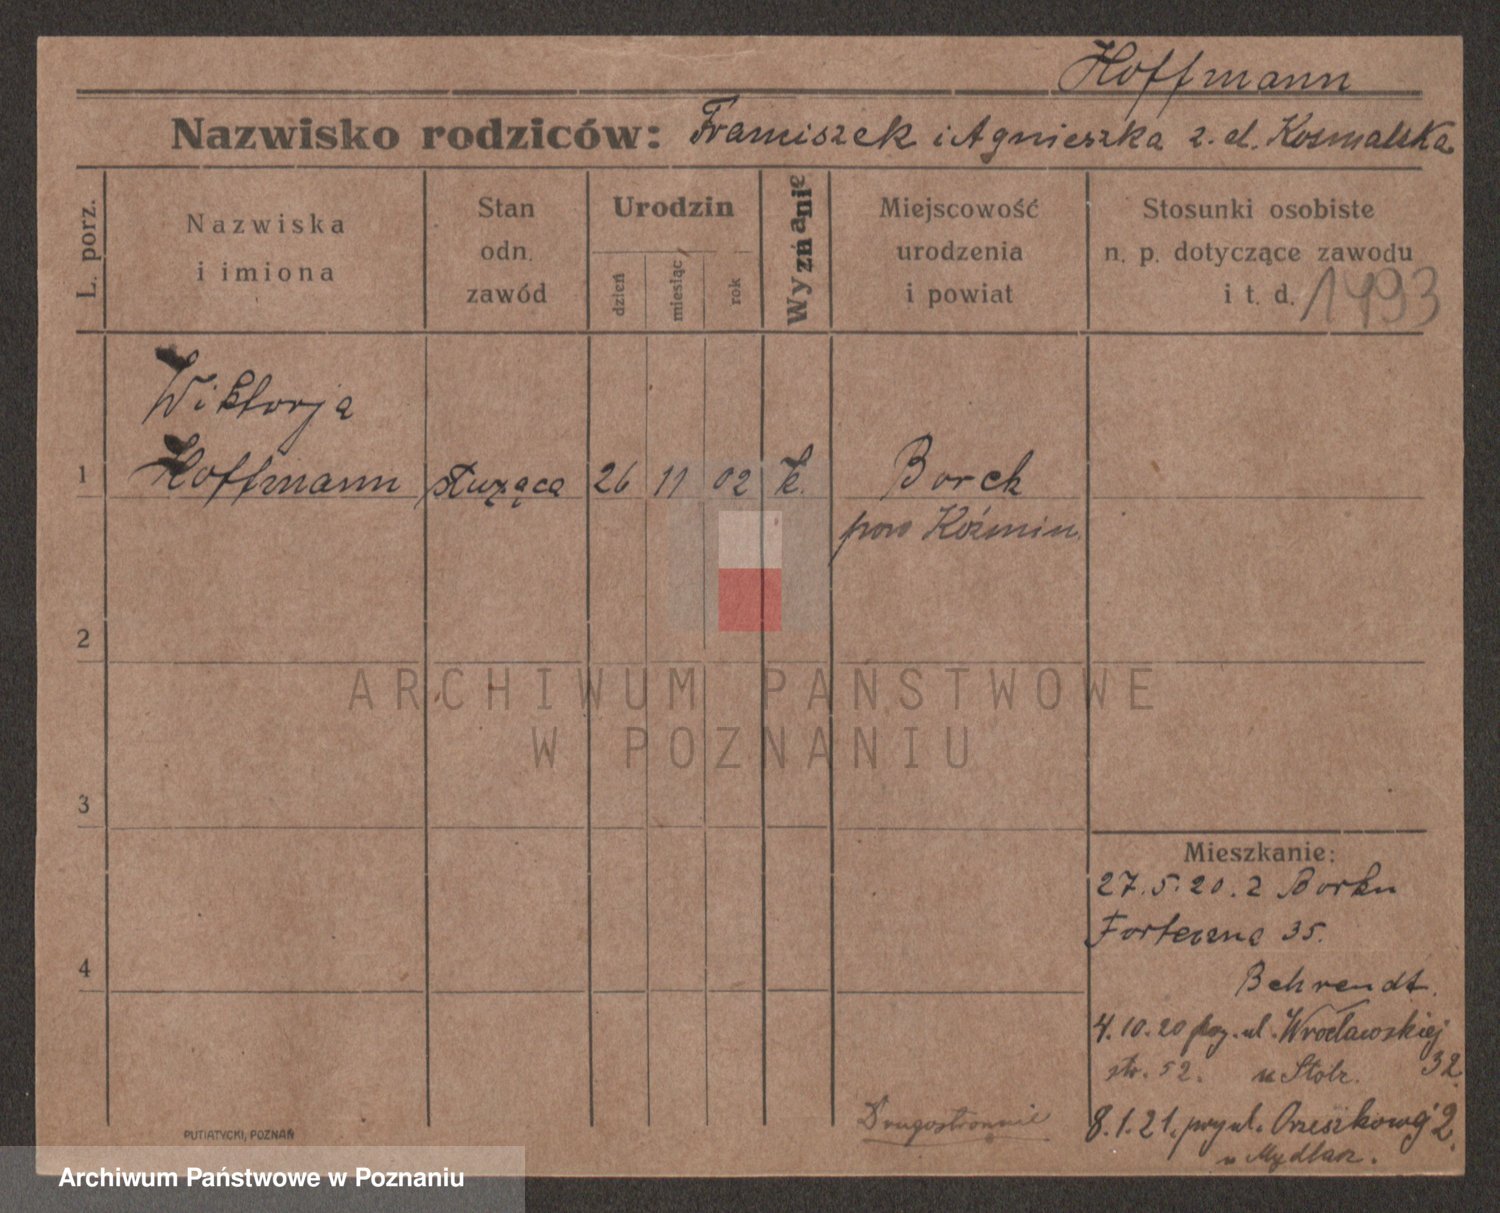 Hoffmann
Nazwisko rodziców: Franciszek i Agnieszka z. d. Kosmalska
L. porz.
Nazwiska
i imiona
Stan
odn.
zawód
Urodzin
dzień
miesiąc
rok
Wyznanie
Miejscowość
urodzenia
i powiat
Stosunki osobiste
n. p. dotyczące zawodu
i t. d.
1493
Wiktorja
1 Hoffmann służąca 26 11 02 k. Borek
pow Koźmin
2
3
4
ARCHIWUM PAŃSTWOWE
W POZNANIU
Mieszkanie:
27.5.20. z Borku
Forteczna 35.
Behrendt.
4.10.20 ul. Wrocławskiej
32
str. 52. u Stolz.
8.1.21. przy ul. Orzeszkowej 2.
u Mydlar.
Drugostronnie
PUTIATYCKI, POZNAŃ
Archiwum Państwowe w Poznaniu